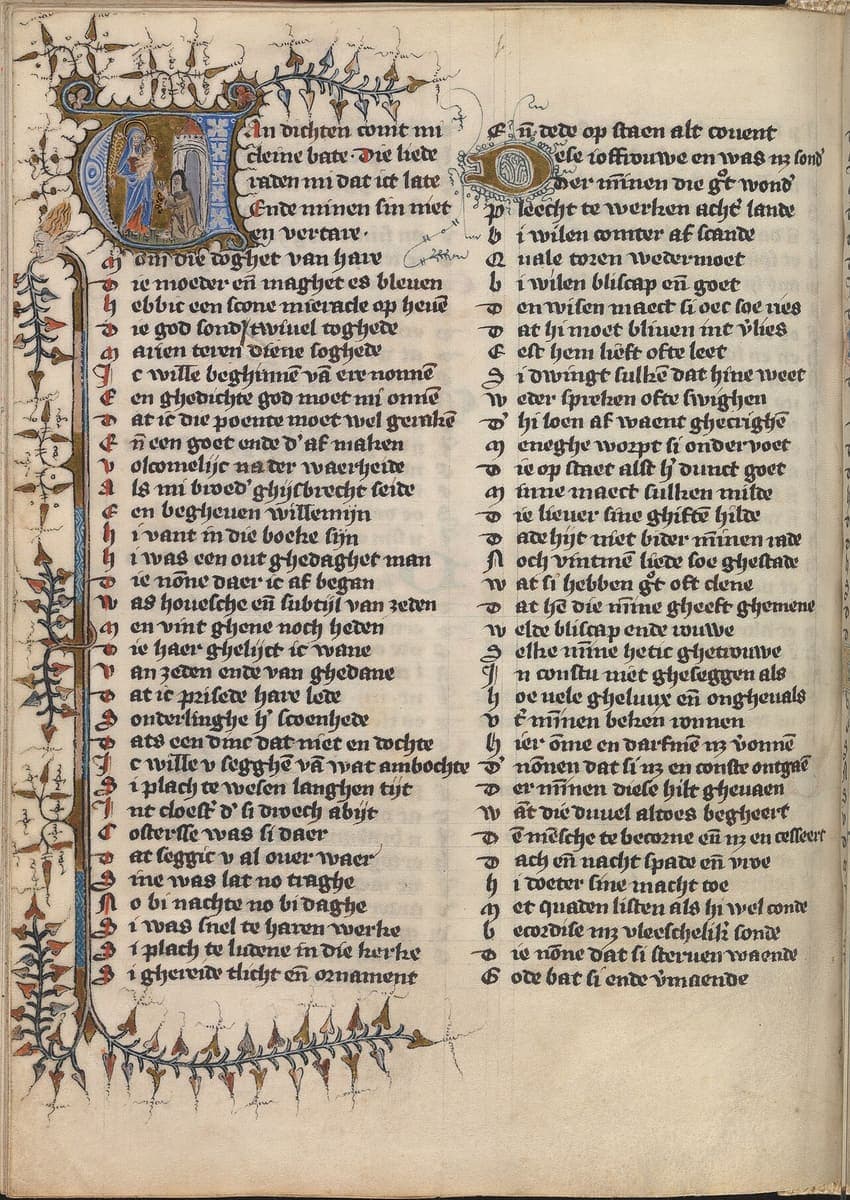 Van dichten comt mi
cleine bate · Die liede
raden mi dat ict late
Ende minen sin niet
en vertare ·
Om die doghet van hare
Die moeder en̄ maghet es bleuen
hebbic een scone mieracle op heuē
Die god sond' twiuel toghede
Marien teren diene soghede
Ic wille beghinnē vā ere nonnē
Een ghedichte god moet mi onnē
Dat ic die poente moet wel gerakē
En̄ een goet ende d' af maken
Volcomelijc na der waerheide
Als mi broed' ghijsbrecht seide
Een begheuen willemijn
hi vant in die boeke sijn
hi was een out ghedaghet man
Die nōne daer ic af began
Was houesche en̄ subtijl van zeden
Men vint ghene noch heden
Die haer ghelijct ic wane
Van zeden ende van ghedane
Dat ic prisede hare lede
Sonderlinghe h' scoenhede
Dats een dinc dat niet en dochte
Ic wille v segghē vā wat ambochte
Si plach te wesen langhen tijt
Int cloest' d' si droech abijt
Costersse was si daer
Dat seggic v al ouer waer
Sine was lat no traghe
No bi nachte no bi daghe
Si was snel te haren werke
Si plach te ludene in die kerke
Si ghereide tlicht en̄ ornament
En̄ dede op staen alt couent
Dese ioffrouwe en was nz sond'
Der mīnen die g°t wond'
Pleecht te werken acht' lande
bi wilen comter af scande
Quale toren wedermoet
bi wilen bliscap en̄ goet
Den wisen maect si oec soe ries
Dat hi moet bliuen int v'lies
Eest hem lieft ofte leet
Si dwingt sulkē dat hine weet
Weder spreken ofte swighen
D' hi loen af waent ghecrighē
Meneghe worpt si onder voet
Die op staet alst h' dunct goet
Minne maect sulken milde
Die lieuer sine ghiftē hilde
Dade hijt niet bider mīnen rade
Noch vintmē liede soe ghestade
Wat si hebben g°t oft clene
Dat hē die mīne gheeft ghemene
Welde bliscap ende rouwe
Selke mīne hetic ghetrouwe
In constu niet gheseggen als
hoe vele gheluux en̄ ongheuals
vt' mīnen beken ronnen
hier ōme en darfmē nz v'onnē
D' nōnen dat si nz en conste ontgaē
Der mīnen diese hilt gheuaen
Want die duuel altoes begheert
Dē mēsche te becorne en̄ nz en cesseert
Dach en̄ nacht spade en̄ vroe
hi doeter sine macht toe
Met quaden listen als hi wel conde
becordise mz vleescheliker sonde
Die nōne dat si steruen waende
Gode bat si ende v'maende